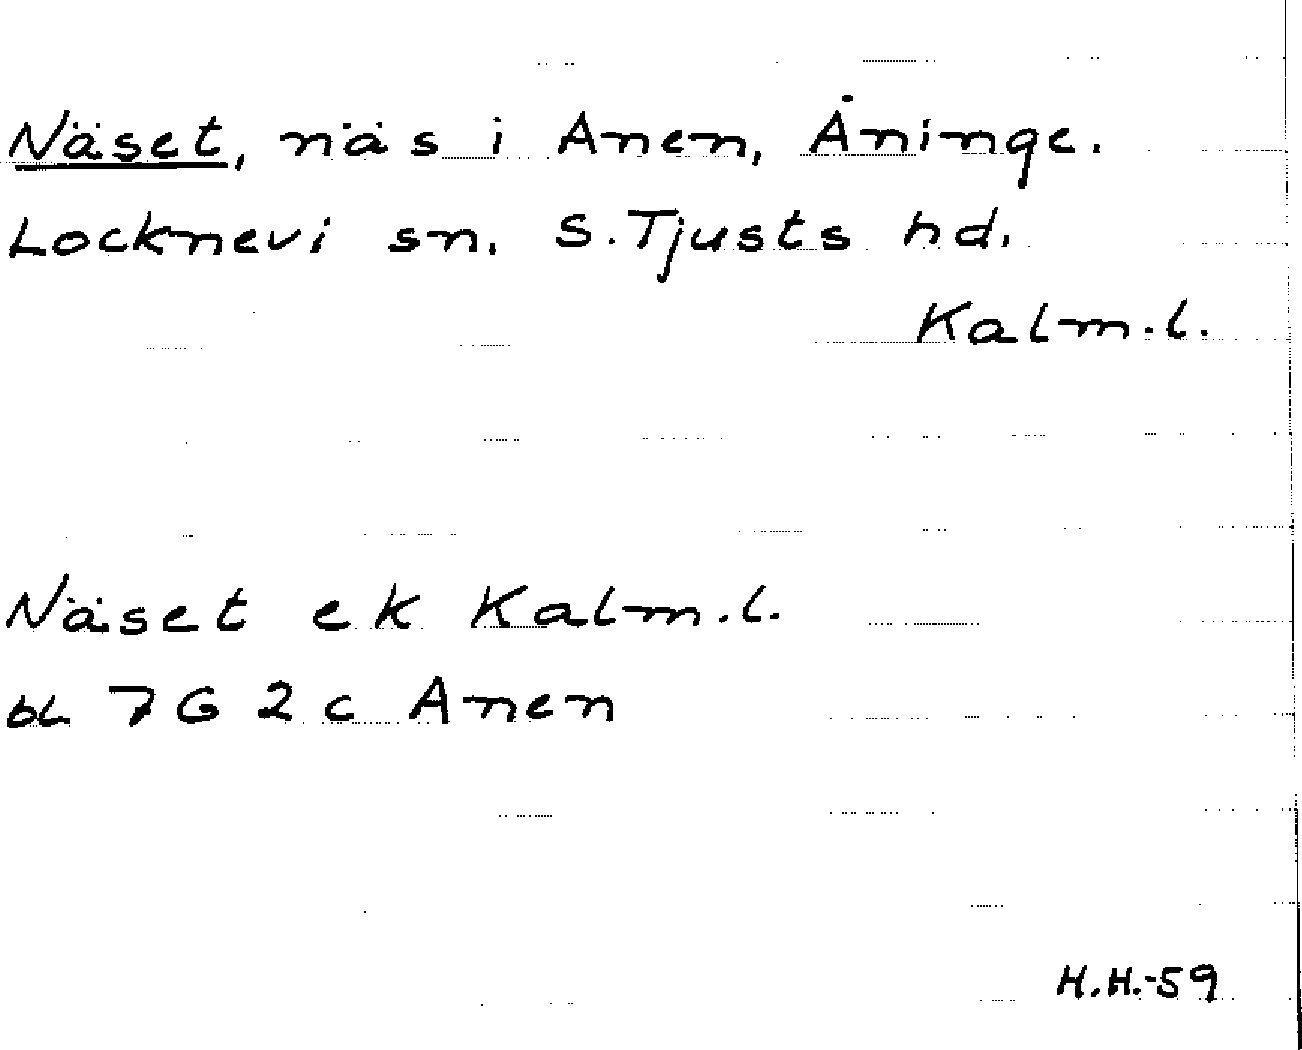 Näset, näs i Anen, Åninge.
Locknevi sn. S. Tjusts hd.
Kalm.l.
Näset ek Kalm.l.
bl 7G 2 c Anen
H.H.-59